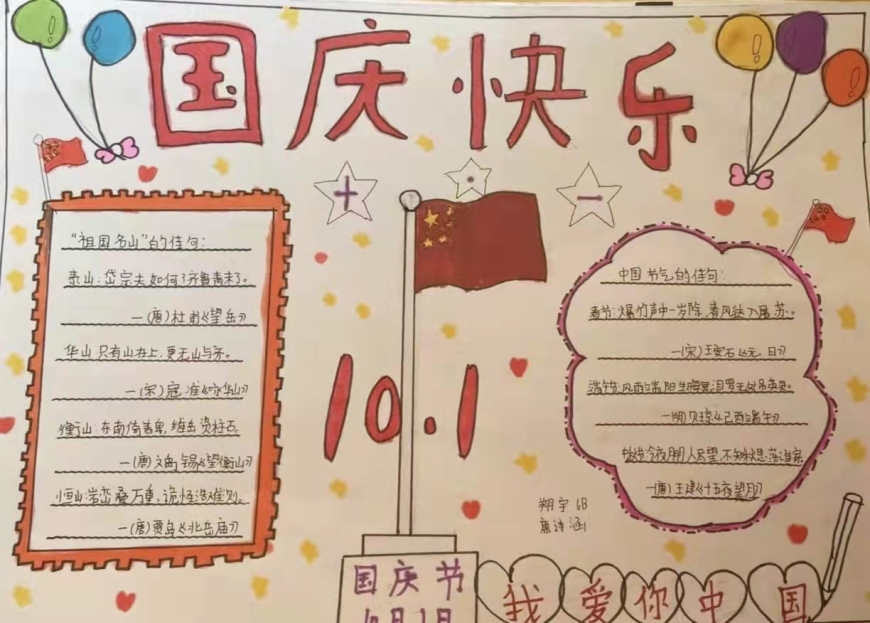 国庆快乐
十 一
"祖国名山"的佳句：
泰山：岱宗夫如何？齐鲁青未了。
—(唐)杜甫《望岳》
华山：只有山在上，更无山与齐。
—(宋)寇准《咏华山》
衡山：东南倚盖卑，维岳资柱石。
—(唐)刘禹锡《望衡山》
恒山：岩峦叠万重，诡怪浩难测。
—(唐)贾岛《北岳庙》
10.1
中国节气的佳句：
春节：爆竹声中一岁除，春风送入屠苏。
—(宋)王安石《元日》
端午节：风雨端阳生晦冥，汨罗无处吊英灵。
—(明)贝琼《己酉端午》
今夜月明人尽望，不知秋思落谁家
—(唐)王建《十五夜望月》
翔宇 6B
国庆节
10月1日
我爱你中国